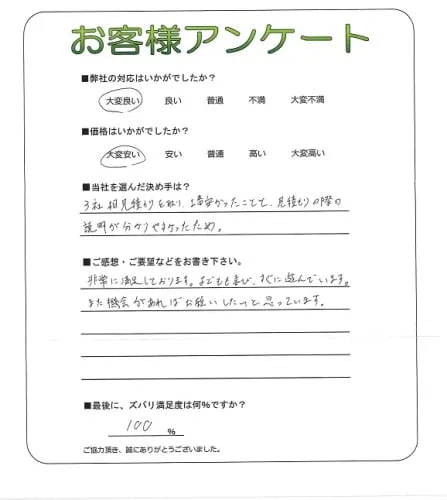 お客様アンケート
■弊社の対応はいかがでしたか?
大変良い 良い 普通 不満 大変不満
■価格はいかがでしたか?
大変安い 安い 普通 高い 大変高い
■当社を選んだ決め手は?
3社相見積もりを取り、1番安かったことと、見積もりの際の
説明が分かりやすかったため。
■ご感想・ご要望などをお書き下さい。
非常に満足しております。子どもも喜び、すぐに遊んでいます。
また機会があればお願いしたいと思っています。
■最後に、ズバリ満足度は何%ですか?
100 %
ご協力頂き、誠にありがとうございました。